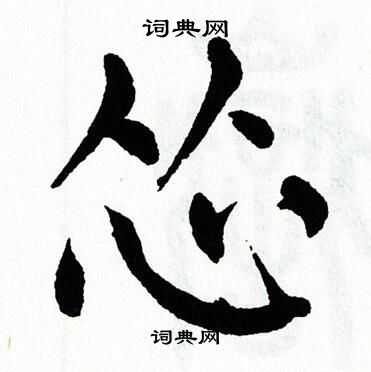 词典网
怂
词典网